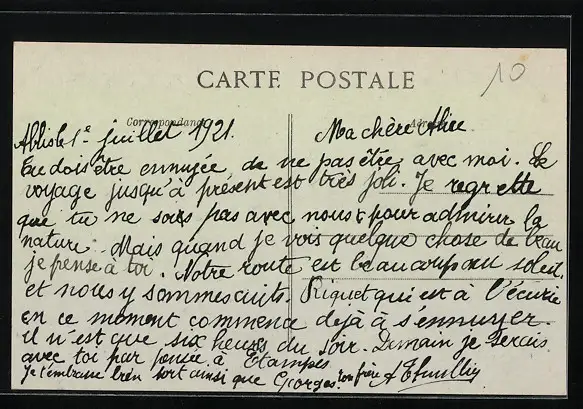 CARTE POSTALE
10
Correspondance
Ablis le 1e juillet 1921.
Ma chère Alice
tu dois être ennuyée de ne pas être avec moi. Le
voyage jusqu'à présent est très joli. Je regrette
que tu ne sois pas avec nous pour admirer la
nature. Mais quand je vois quelque chose de beau
je pense à toi. Notre route est beaucoup au soleil.
et nous y sommes cuits. Riquet qui est à l'écurie
en ce moment commence déjà à s'ennuyer.
il n'est que six heures du soir. Demain je serais
avec toi par pensée à Etampes
Je t'embrasse bien fort ainsi que Georges. ton frère